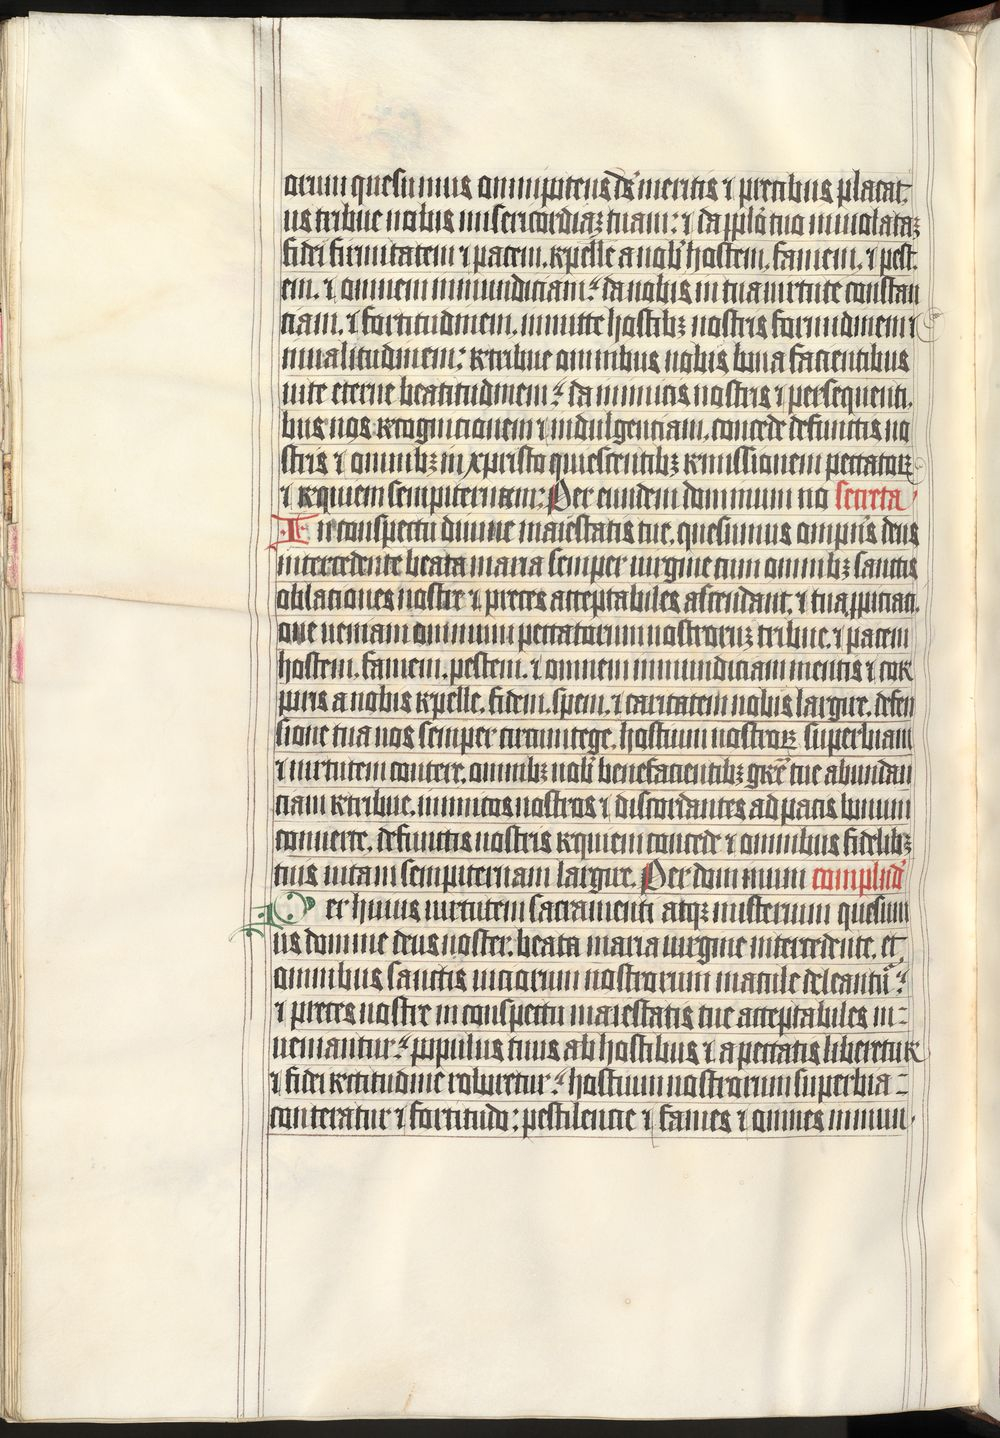 orum quesumus omnipotens ds̄ meritis ⁊ precibus placat,
us tribue nobis misericordiaꝫ tuam: ⁊ da pplō tuo inuiolataꝫ
fidei firmitatem ⁊ pacem. repelle a nob̾ hostem. famem. ⁊ pest,
em. ⁊ omnem inmundiciam: da nobis in tua uirtute constan
ciam. ⁊ fortitudinem. inmitte hostibꝫ nostris formidinem ⁊
inualitudinem: retribue omnibus nobis bona facientibus
uite eterne beatitudinem: da inimicis nostris ⁊ persequenti,
bus nos recognicionem ⁊ indulgenciam. concede defunctis no
stris ⁊ omnibꝫ in xpristo quiescentibꝫ remissionem peccatoꝝ
⁊ requiem sempiternam: Per eundem dominum no secreta
In conspectu diuine maiestatis tue. quesumus omp̄ns deus
intercedente beata maria semper uirgine cum omnibꝫ sanctis
oblaciones nostre ⁊ preces acceptabiles ascendant. ⁊ tua ꝓpiciaci,
one ueniam omnium peccatorum nostroruꝫ tribue. ⁊ pacem
hostem. famem. pestem. ⁊ omnem inmundiciam mentis ⁊ cor
poris a nobis repelle. fidem. spem. ⁊ caritatem nobis largire. defen
sione tua nos semper circumtege. hostium nostroꝝ superbiam
⁊ uirtutem contere. omnibꝫ nob̾ benefacientibꝫ grē tue abundan
ciam retribue. inimicos nostros ⁊ discordantes ad pacis bonum
conuerte. defunctis nostris requiem concede ⁊ omnibus fidelibꝫ
tuis uitam sempiternam largire. Per dominum complnd̾
Per huius uirtutem sacramenti atqꝫ misterium quesum
us domine deus noster. beata maria uirgine intercedente. et
omnibus sanctis uiciorum nostrorum macule deleantur:
⁊ preces nostre in conspectu maiestatis tue acceptabiles in-
ueniantur: populus tuus ab hostibus ⁊ a peccatis liberetur
⁊ fidei rectitudine roburetur: hostium nostrorum superbia -
conteratur ⁊ fortitudo: pestilencie ⁊ fames ⁊ omnes inmun,